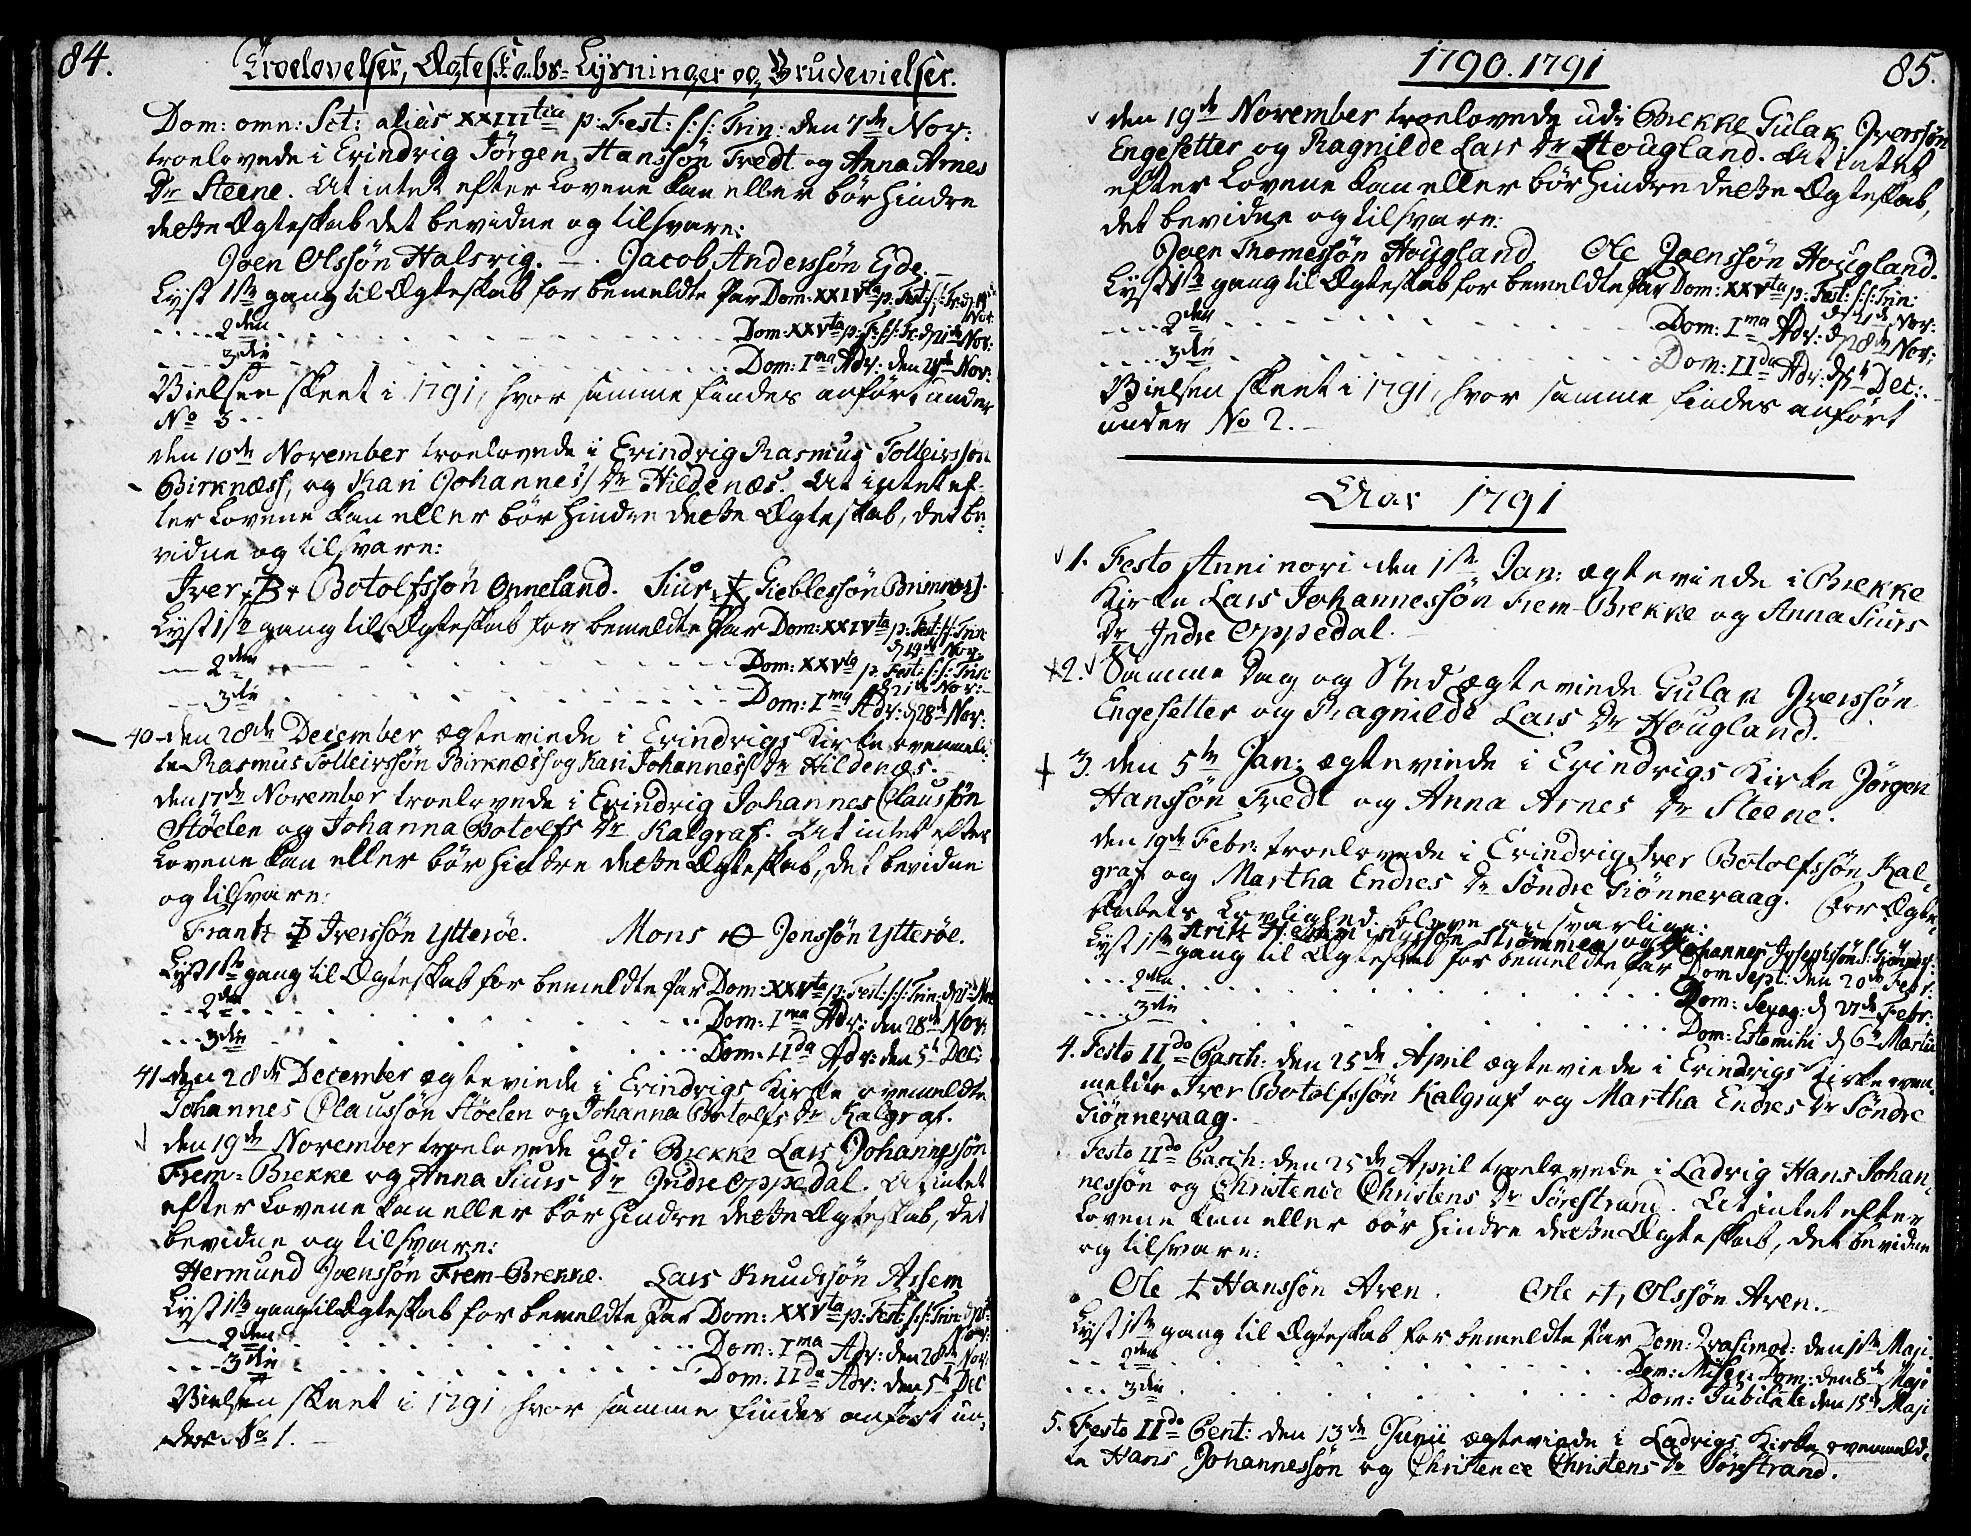 84.
Troelovelser, Ægteskabs-Lysninger og Brudevielser.
Dom: omn: Sct: alias XXIIItia p: Fest: s:s: Trin: den 7de Nov:
troelovede i Evindvig Jörgen Hanssön Tredt og Anna Arnes
Dr Steene. At intet efter Lovene kan eller bör hindre
dette Ægteskab det bevidne og tilsvare:
Joen Olssön Halsvig. Jacob Anderssön Ejde.
Lyst 1ste gang til Ægteskab for bemeldte Par Dom: XXIVta p: Fest: s:s: Tr: d 14de
Nov:
2den Dom: XXVta p: F: s:s: Tr: d 21de Nov:
3die Dom: Ima Adv: den 28de Nov:
Vielsen skeet i 1791, hvor samme findes anfört under
No 3
den 10de November troelovede i Evindvig Rasmus Tolleivssön
Birknæss, og Kari Johannes Dr Hildenæs. At intet ef-
ter Lovene kan eller bör hindre dette Ægteskab, det be-
vidne og tilsvare:
Iver B Botolfssön Opneland. Siur Gieblessön Brimnæs.
Lyst 1ste gang til Ægteskab for bemeldte Par Dom: XXIVta p: Fest: s:s: Trin:
d 14de Nov:
2den Dom: XXVta p: Fest: s:s: Trin:
d 21de Nov:
3die Dom: Ima Adv: d 28de Nov:
40 den 28de December ægteviede i Evindvigs Kirke ovenmeld-
te Rasmus Tolleivssön Birknæss og Kari Johannes Dr Hildenæs.
den 17de November troelovede i Evindvig Johannes Claussön
Stöelen og Johanna Botolfs Dr Kalgraf. At intet efter
Lovene kan eller bör hindre dette Ægteskab, det bevidne
og tilsvare:
Frantz Iverssön Ytteröe. Mons Jenssön Ytteröe.
Lyst 1ste gang til Ægteskab for bemeldte Par Dom: XXVta p: Fest: s:s: Trin: d 21de Nov
2den Dom: Ima Adv: den 28de Nov:
3die Dom: IIda Adv: den 5te Dec:
41 den 28de December ægteviede i Evindvigs Kirke ovenmeldte
Johannes Claussön Stöelen og Johanna Botolfs Dr Kalgraf.
den 19de November troelovede udi Brekke Lars Johannessön
Frem-Brekke og Anna Siurs Dr Indre Oppedal. At intet
efter Lovene kan eller bör hindre dette Ægteskab, det
bevidne og tilsvare:
Hermund Joenssön Frem-Brekke. Lars Knudssön Assem
Lyst 1ste gang til Ægteskab for bemeldte Par Dom: XXVta p: Fest: s:s: Trin: d 21de
Nov:
2den Dom: Ima Adv: den 28de Nov:
3die Dom: IIda Adv: den 5te Dec
Vielsen skeet i 1791, hvor samme findes anfört un-
der No 1.
1790. 1791
85.
den 19de November troelovede udi Brekke Gulak Iverssön
Engesetter og Ragnilde Lars Dr Hougland. At intet
efter Lovene kan eller bör hindre dette Ægteskab,
det bevidne og tilsvare:
Joen Thomessön Hougland. Ole Joenssön Hougland.
Lyst 1ste gang til Ægteskab for bemeldte Par Dom: XXVta p: Fest: s:s: Trin:
d 21de Nov:
2den Dom: Ima Adv: d 28de Nov:
3die Dom: IIda Adv: d 5te Dec:
Vielsen skeet i 1791, hvor samme findes anfört
under No 2.
Aar 1791
1. Festo Anni novi den 1ste Jan: ægteviede i Brekke
Kirke Lars Johannessön Frem-Brekke og Anna Siurs
Dr Indre Oppedal.
2. Samme Dag og Sted ægteviede Gulak Iverssön
Engesetter og Ragnilde Lars Dr Hougland.
3. den 5te Jan: ægteviede i Evindvigs Kirke Jörgen
Hanssön Tredt og Anna Arnes Dr Steene.
den 19de Febr: troelovede i Evindvig Iver Botolfssön Kal-
graf og Martha Endres Dr Söndre Giönneraag. For Ægte-
skabets Lovlighed bleve ansvarlige:
Arit Hemingssön Strömmen, og Johannes Josephssön S: Giönner:
Lyst 1ste gang til Ægteskab for bemeldte Par Dom Sept: den 20de Febr:
2den Dom: Sexag: d 27de Febr:
3die Dom: Estomihi d 6te Martii
4. Festo IIdo Pasch: den 25de April ægteviede i Evindvigs Kirke oven-
meldte Iver Botolfssön Kalgraf og Martha Endres Dr Söndre
Giönneraag.
Festo IIdo Pasch: den 25de April troelovede i Ladvig Hans Johan-
nessön og Christence Christens Dr Sörestrand. At intet efter
Lovene kan eller bör hindre dette Ægteskab, det bevidne
og tilsvare:
Ole Hanssön Aven. Ole Olssön Aven.
Lyst 1ste gang til Ægteskab for bemeldte Par Dom: Qvasimod: den 1ste Maji
2den Dom: Miser: Dom: den 8de Maji
3die Dom: Jubilate den 15de Maji
5. Festo IIdo Pent: den 13de Junii ægteviede i Ladvigs Kirke ovenmeld-
te Hans Johannessön og Christence Christens Dr Sörestrand.